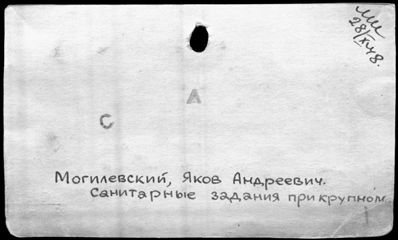 28/XI 48.
А
С
Могилевский, Яков Андреевич.
Санитарные задания при крупном